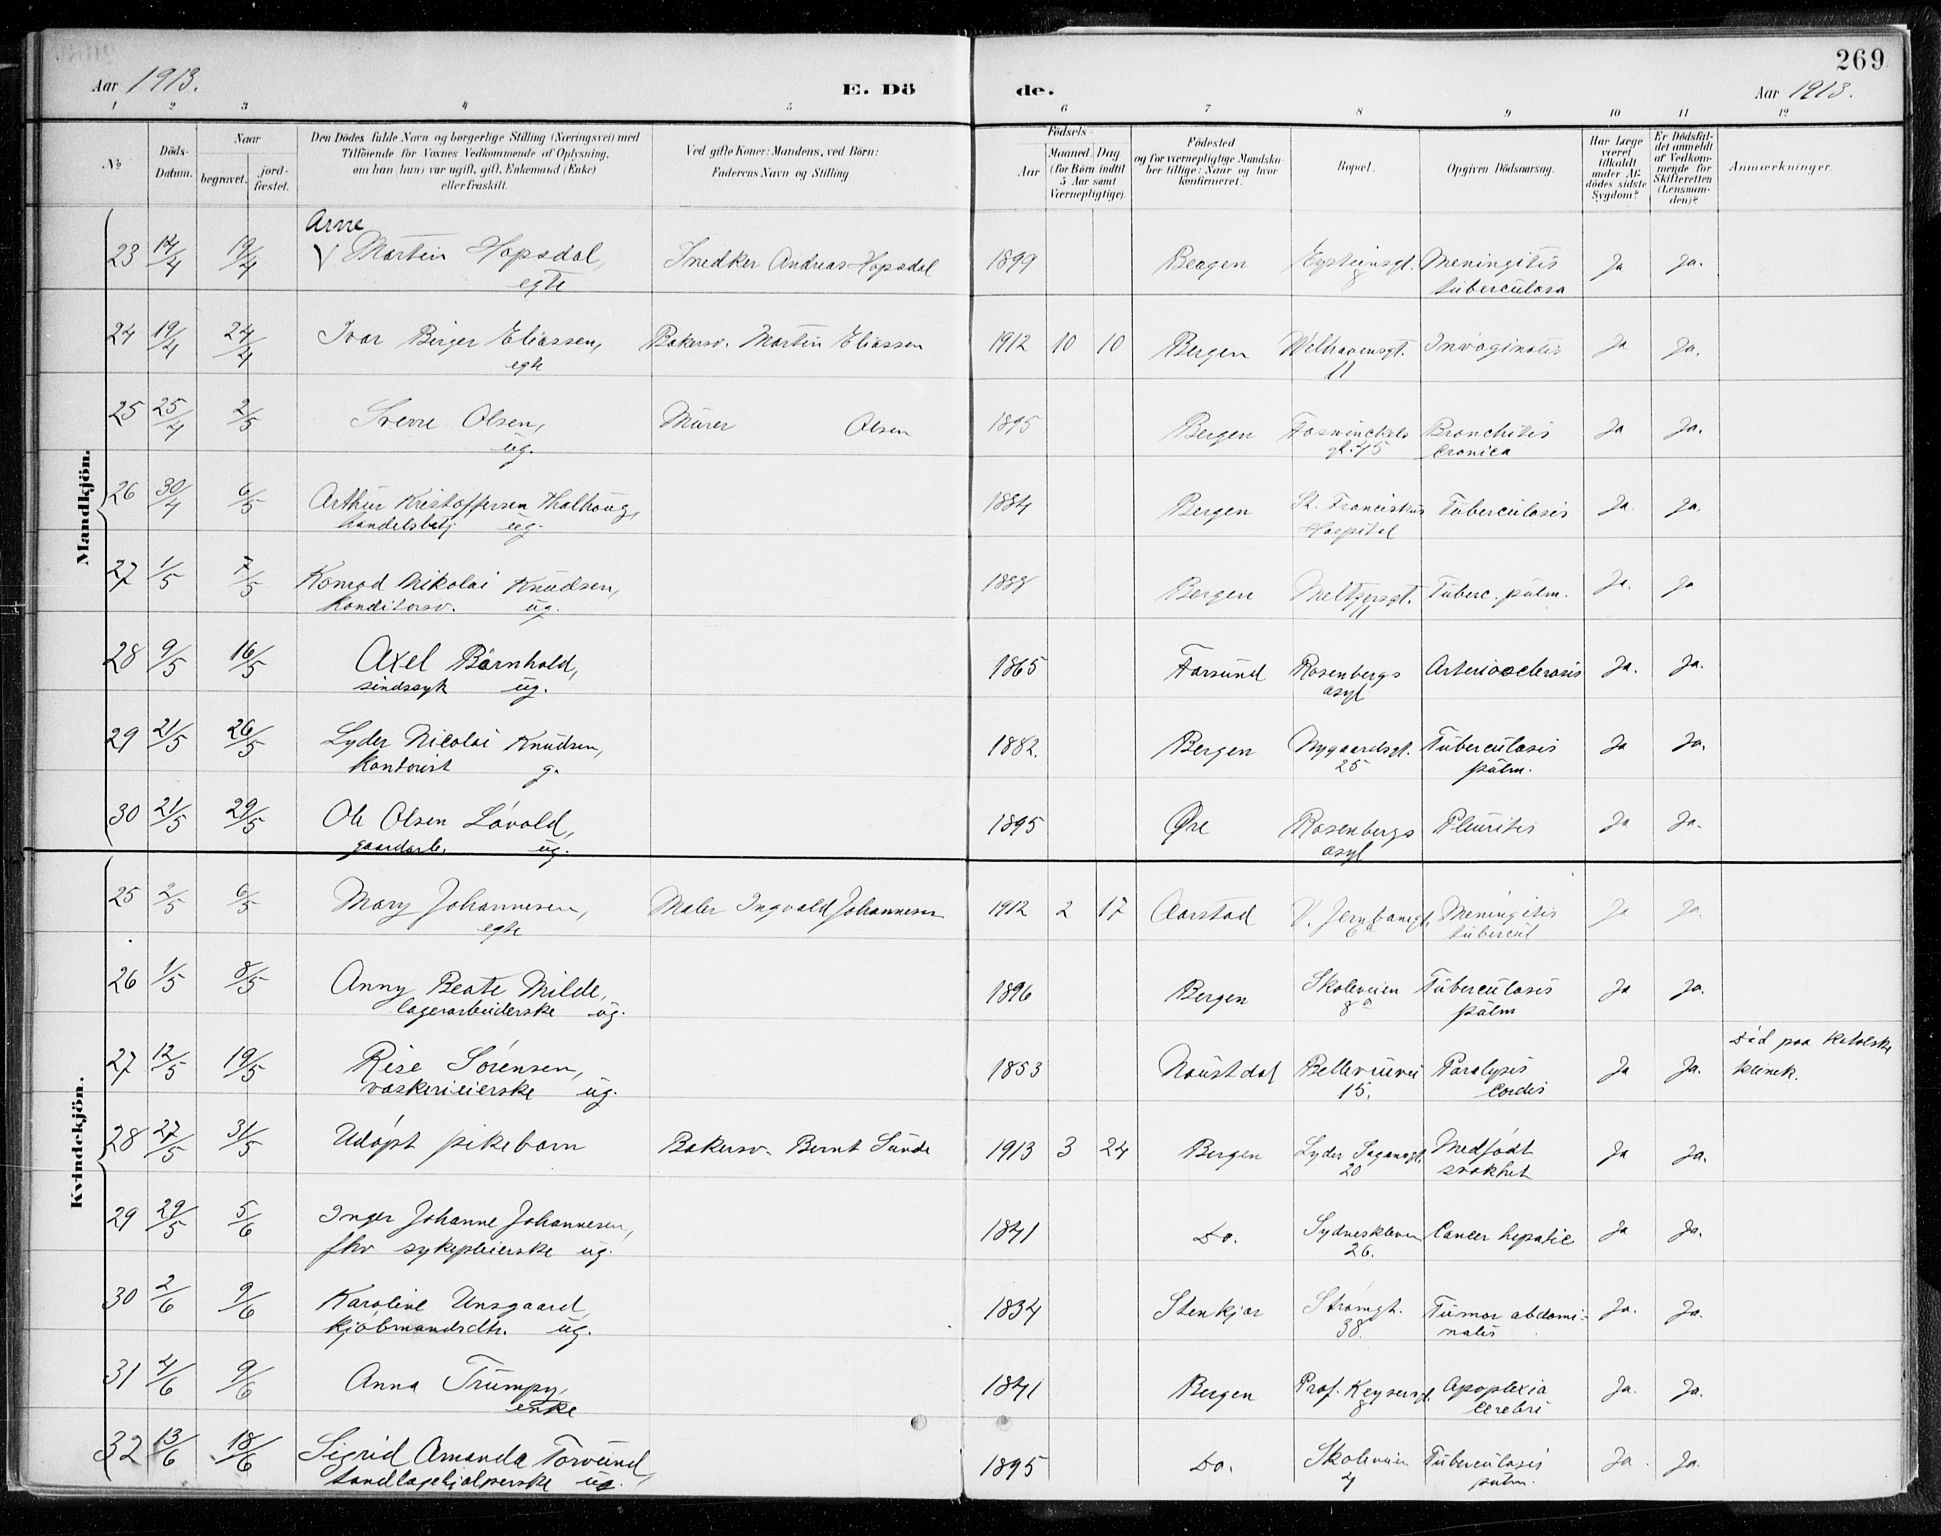 269
Aar 1913. E. Dö de. Aar 1913.
1 2 3 4 5 6 7 8 9 10 11 12
No
Döds-Datum.
Naar
begravet.
jord-fæstet.
Den Dödes fulde Navn og borgerlige Stilling (Næringsvei) med
Tilföiende for Voxnes Vedkommende af Oplysning,
om han (hun) var ugift, gift, Enkemand (Enke)
eller fraskilt.
Ved gifte Koner: Mandens, ved Börn:
Faderens Navn og Stilling.
Födsels-
Aar
Maaned Dag
(for Börn indtil
5 Aar samt
Værnepligtige).
Födested
og for værnepligtige Mandskaber tillige: Naar og hvor
konfirmeret.
Bopæl.
Opgiven Dödsaarsag.
Har Læge
været
tilkaldt
under Afdödes sidste
Sygdom?
Er Dödsfaldet anmeldt
af Vedkommende for
Skifteretten
(Lensmanden)?
Anmærkninger.
Mandkjön.
Arne
23 17/4 19/4 Martin Hopsdal, Snedker Andreas Hopsdal 1899 Bergen Eysteinsgt. Meningitis Ja Ja.
egte 8 tuberculosa
24 19/4 24/4 Ivar Birger Eliassen, Bakersv. Martin Eliassen 1912 10 10 Bergen Welhavensgt. Invaginatio Ja Ja.
egte 11
25 25/4 2/5 Sverre Olsen, Murer Olsen 1895 Bergen Foswinckels Bronchitis Ja Ja.
ug. gt. 45 cronica
26 30/4 6/5 Arthur Kristoffersen Halhoug, 1884 Bergen St. Franciskus Tuberculosis Ja. Ja.
handelsbetj ug. Hospital
27 1/5 7/5 Konrad Nikolai Knudsen, 1888 Bergen Meltzersgt. Tuberc. pulm. Ja. Ja
Konditorsv. ug. 11
28 9/5 16/5 Axel Barnhold, 1865 Farsund Rosenbergs Arteriosclerosis Ja. Ja.
sindssyk ug. asyl
29 21/5 26/5 Lyder Nicolai Knudsen, 1882. Bergen Nygaardsgt. Tuberculosis Ja Ja.
kontorist g. 25 pulm.
30 21/5 29/5 Ole Olsen Lövold, 1895 Øre Rosenbergs Pleuritis Ja Ja.
gaardarb. ug. asyl
Kvindekjön.
25 2/5 6/5 Mary Johannesen, Maler Ingvald Johannesen 1912 2 17 Aarstad V. Jernbanegt. Meningitis Ja Ja.
egte tubercul
26 1/5 8/5 Anny Beate Milde, 1896 Bergen Skoleveien Tuberculosis Ja Ja.
lagerarbeiderske ug. 8a pulm
27 12/5 19/5 Rise Sörensen, 1853 Naustdal Bellevuevei Paralysis Ja Ja. död paa katolske
vaskerieierske ug. 15. Cordis klinek.
28 27/5 31/5 Udöpt pikebarn Bakersv. Bernt Sunde 1913 3 24 Bergen Lyder Sagensgt. Medfödt Ja Ja.
20 svakhet
29 29/5 5/6 Inger Johanne Johannesen, 1841 Do. Sydneskleven Cancer hepatic Ja Ja.
fhv sykepleierske ug. 26.
30 2/6 9/6 Karoline Unsgaard, 1834 Stenkjær Strömgt. Tumor abdomi- Ja. Ja.
kjöbmandsdtr. ug. 38. nalis
31 4/6 9/6 Anna Trumpy, 1841 Bergen Prof. Keysersgt. Apoplexia Ja. Ja.
enke 8 cerebri
32 13/6 18/6 Sigrid Amanda Torvund, 1895 Do. Skoleveien Tuberculosis Ja. Ja.
tandlægehjælperske ug. 4 pulm.